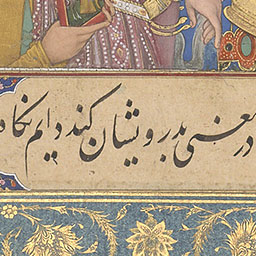 در معنی بدرویشان کند دایم نگاه